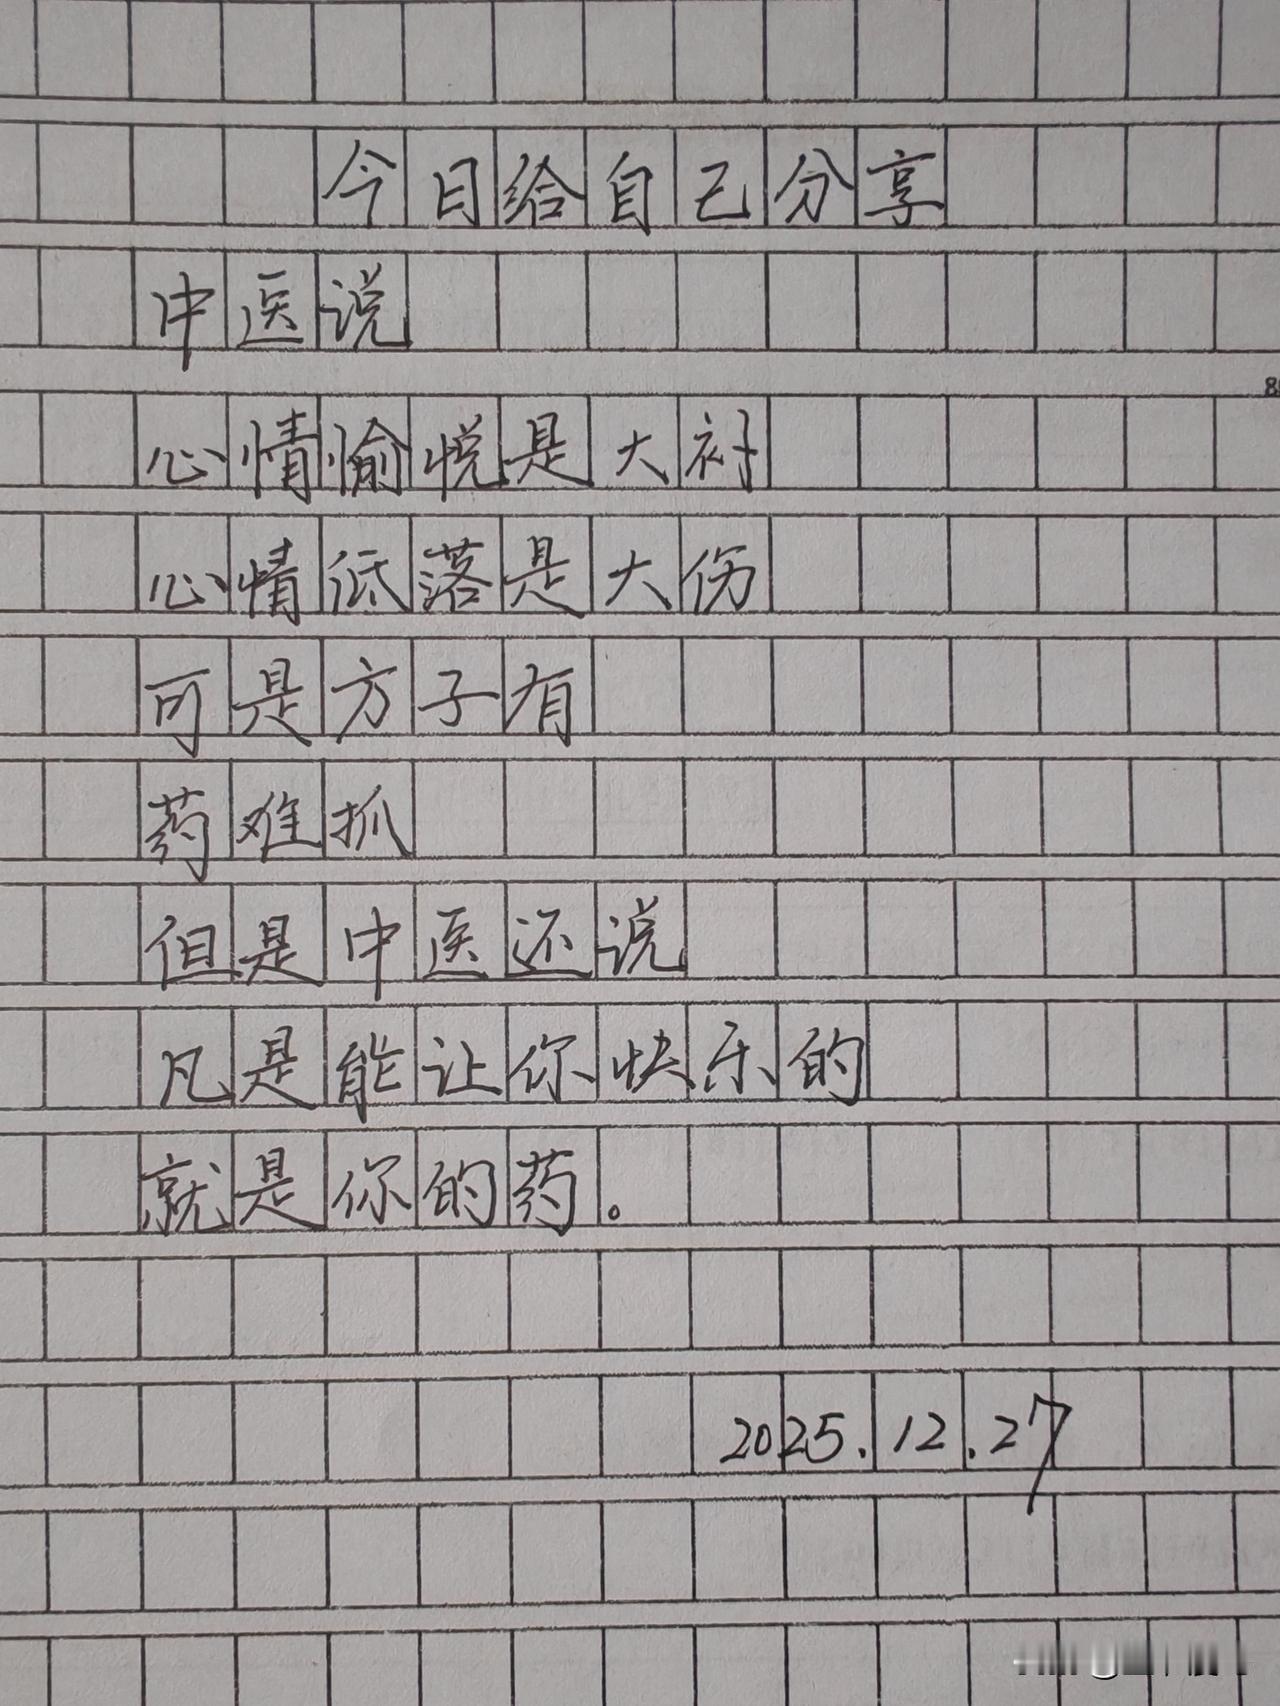 今日给自己分享
中医说
心情愉悦是大衬
心情低落是大伤
可是方子有
药难抓
但是中医还说
凡是能让你快乐的
就是你的药。
2025.12.27